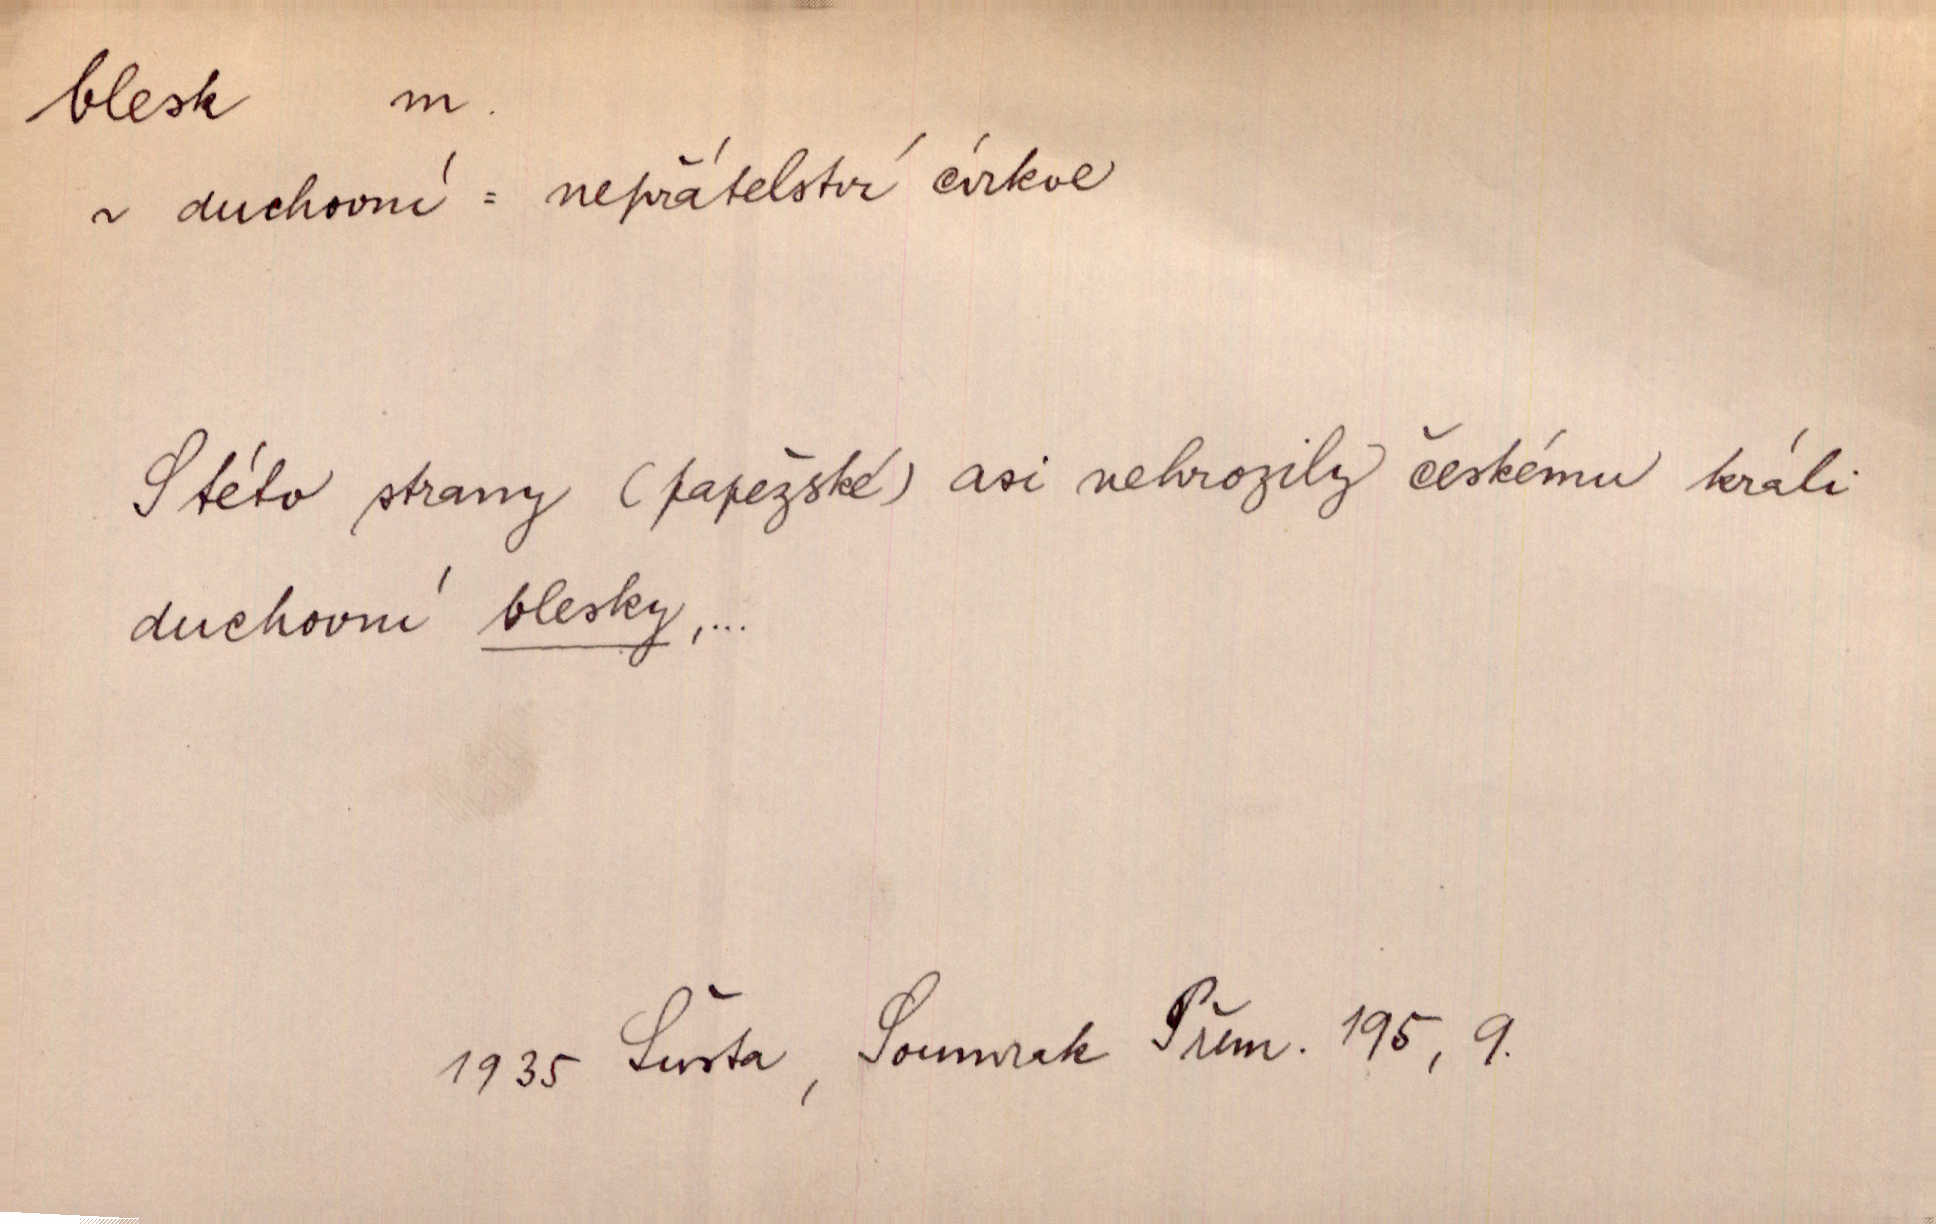 blesk m.
~ duchovní = nepřátelství církve
S této strany (papežské) asi nehrozily českému králi
duchovní blesky,...
1935 Šusta, Soumrak Přem. 195, 9.